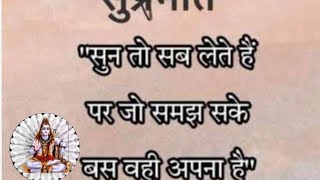 सुप्रभात
"सुन तो सब लेते हैं
पर जो समझ सके
बस वही अपना है"